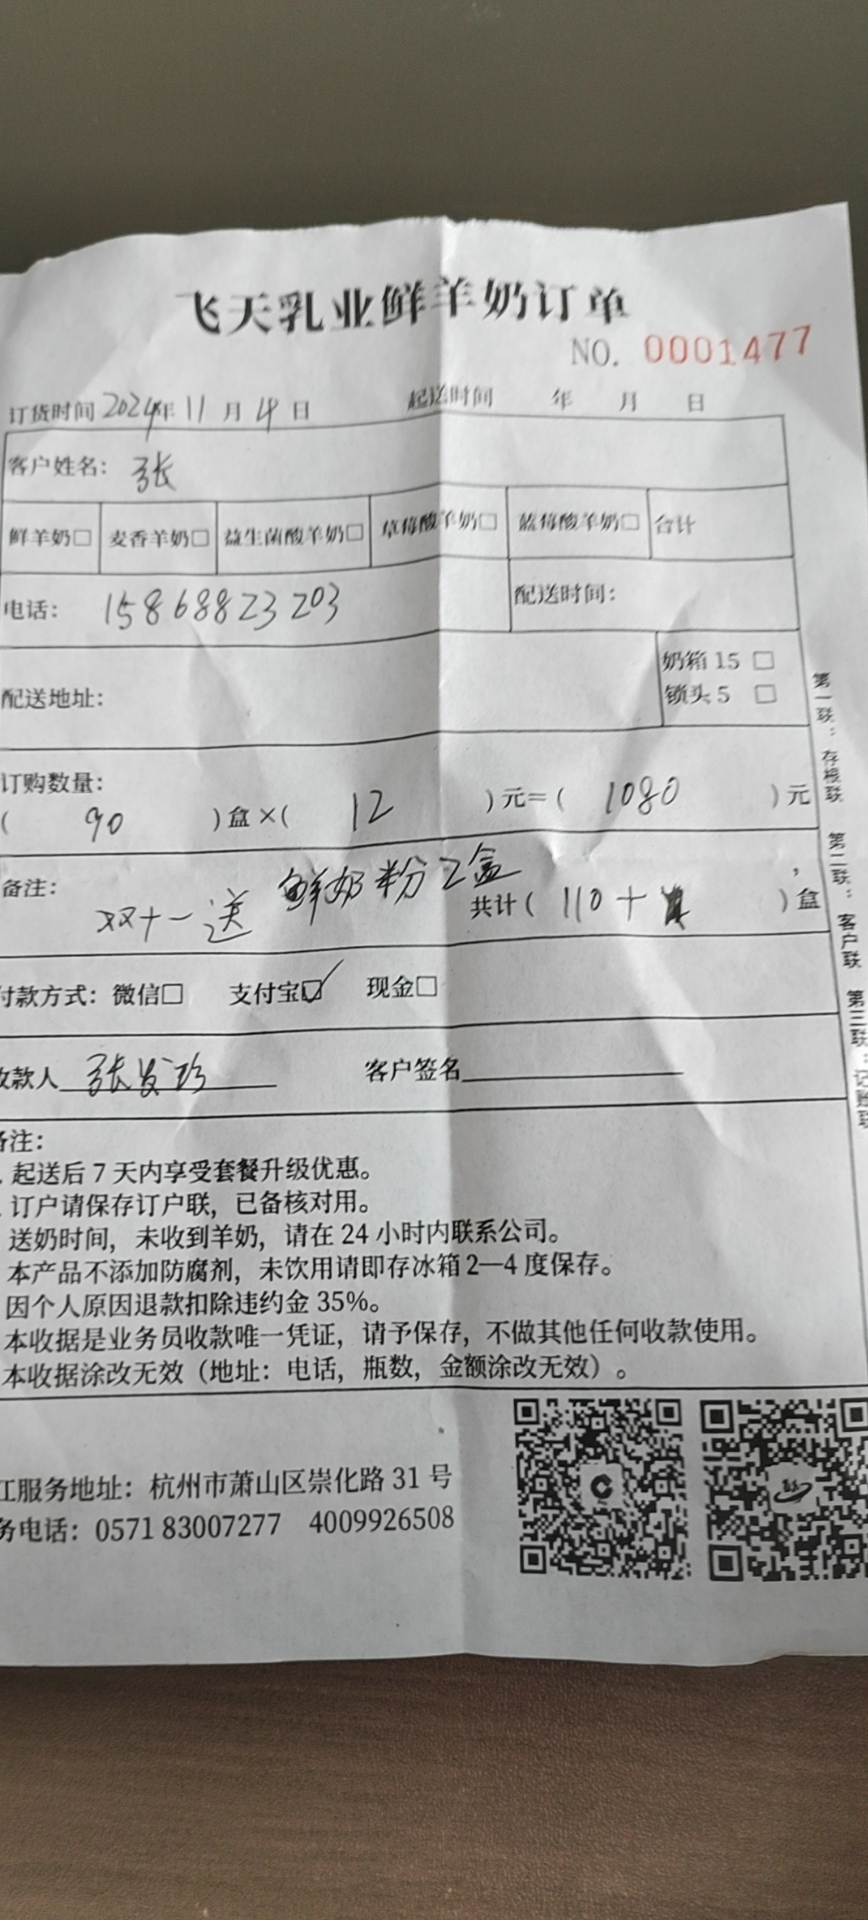 飞天乳业鲜羊奶订单
NO. 0001477
订货时间 2024年 11 月 4 日 起送时间 年 月 日
客户姓名: 张
鲜羊奶□ 麦香羊奶□ 益生菌酸羊奶□ 草莓酸羊奶□ 蓝莓酸羊奶□ 合计
电话: 15868823203 配送时间:
配送地址: 奶箱 15 □
锁头 5 □
订购数量:
( 90 )盒×( 12 )元=( 1080 )元
备注: 双十一送 鲜奶粉2盒
共计( 110+ )盒
付款方式: 微信□ 支付宝☑ 现金□
收款人 张发珍 客户签名
备注:
起送后 7 天内享受套餐升级优惠。
订户请保存订户联, 已备核对用。
送奶时间, 未收到羊奶, 请在 24 小时内联系公司。
本产品不添加防腐剂, 未饮用请即存冰箱 2—4 度保存。
因个人原因退款扣除违约金 35%。
本收据是业务员收款唯一凭证, 请予保存, 不做其他任何收款使用。
本收据涂改无效 (地址: 电话, 瓶数, 金额涂改无效) 。
服务地址: 杭州市萧山区崇化路 31 号
务电话: 0571 83007277 4009926508
第一联: 存根联 第二联: 客户联 第三联: 记账联